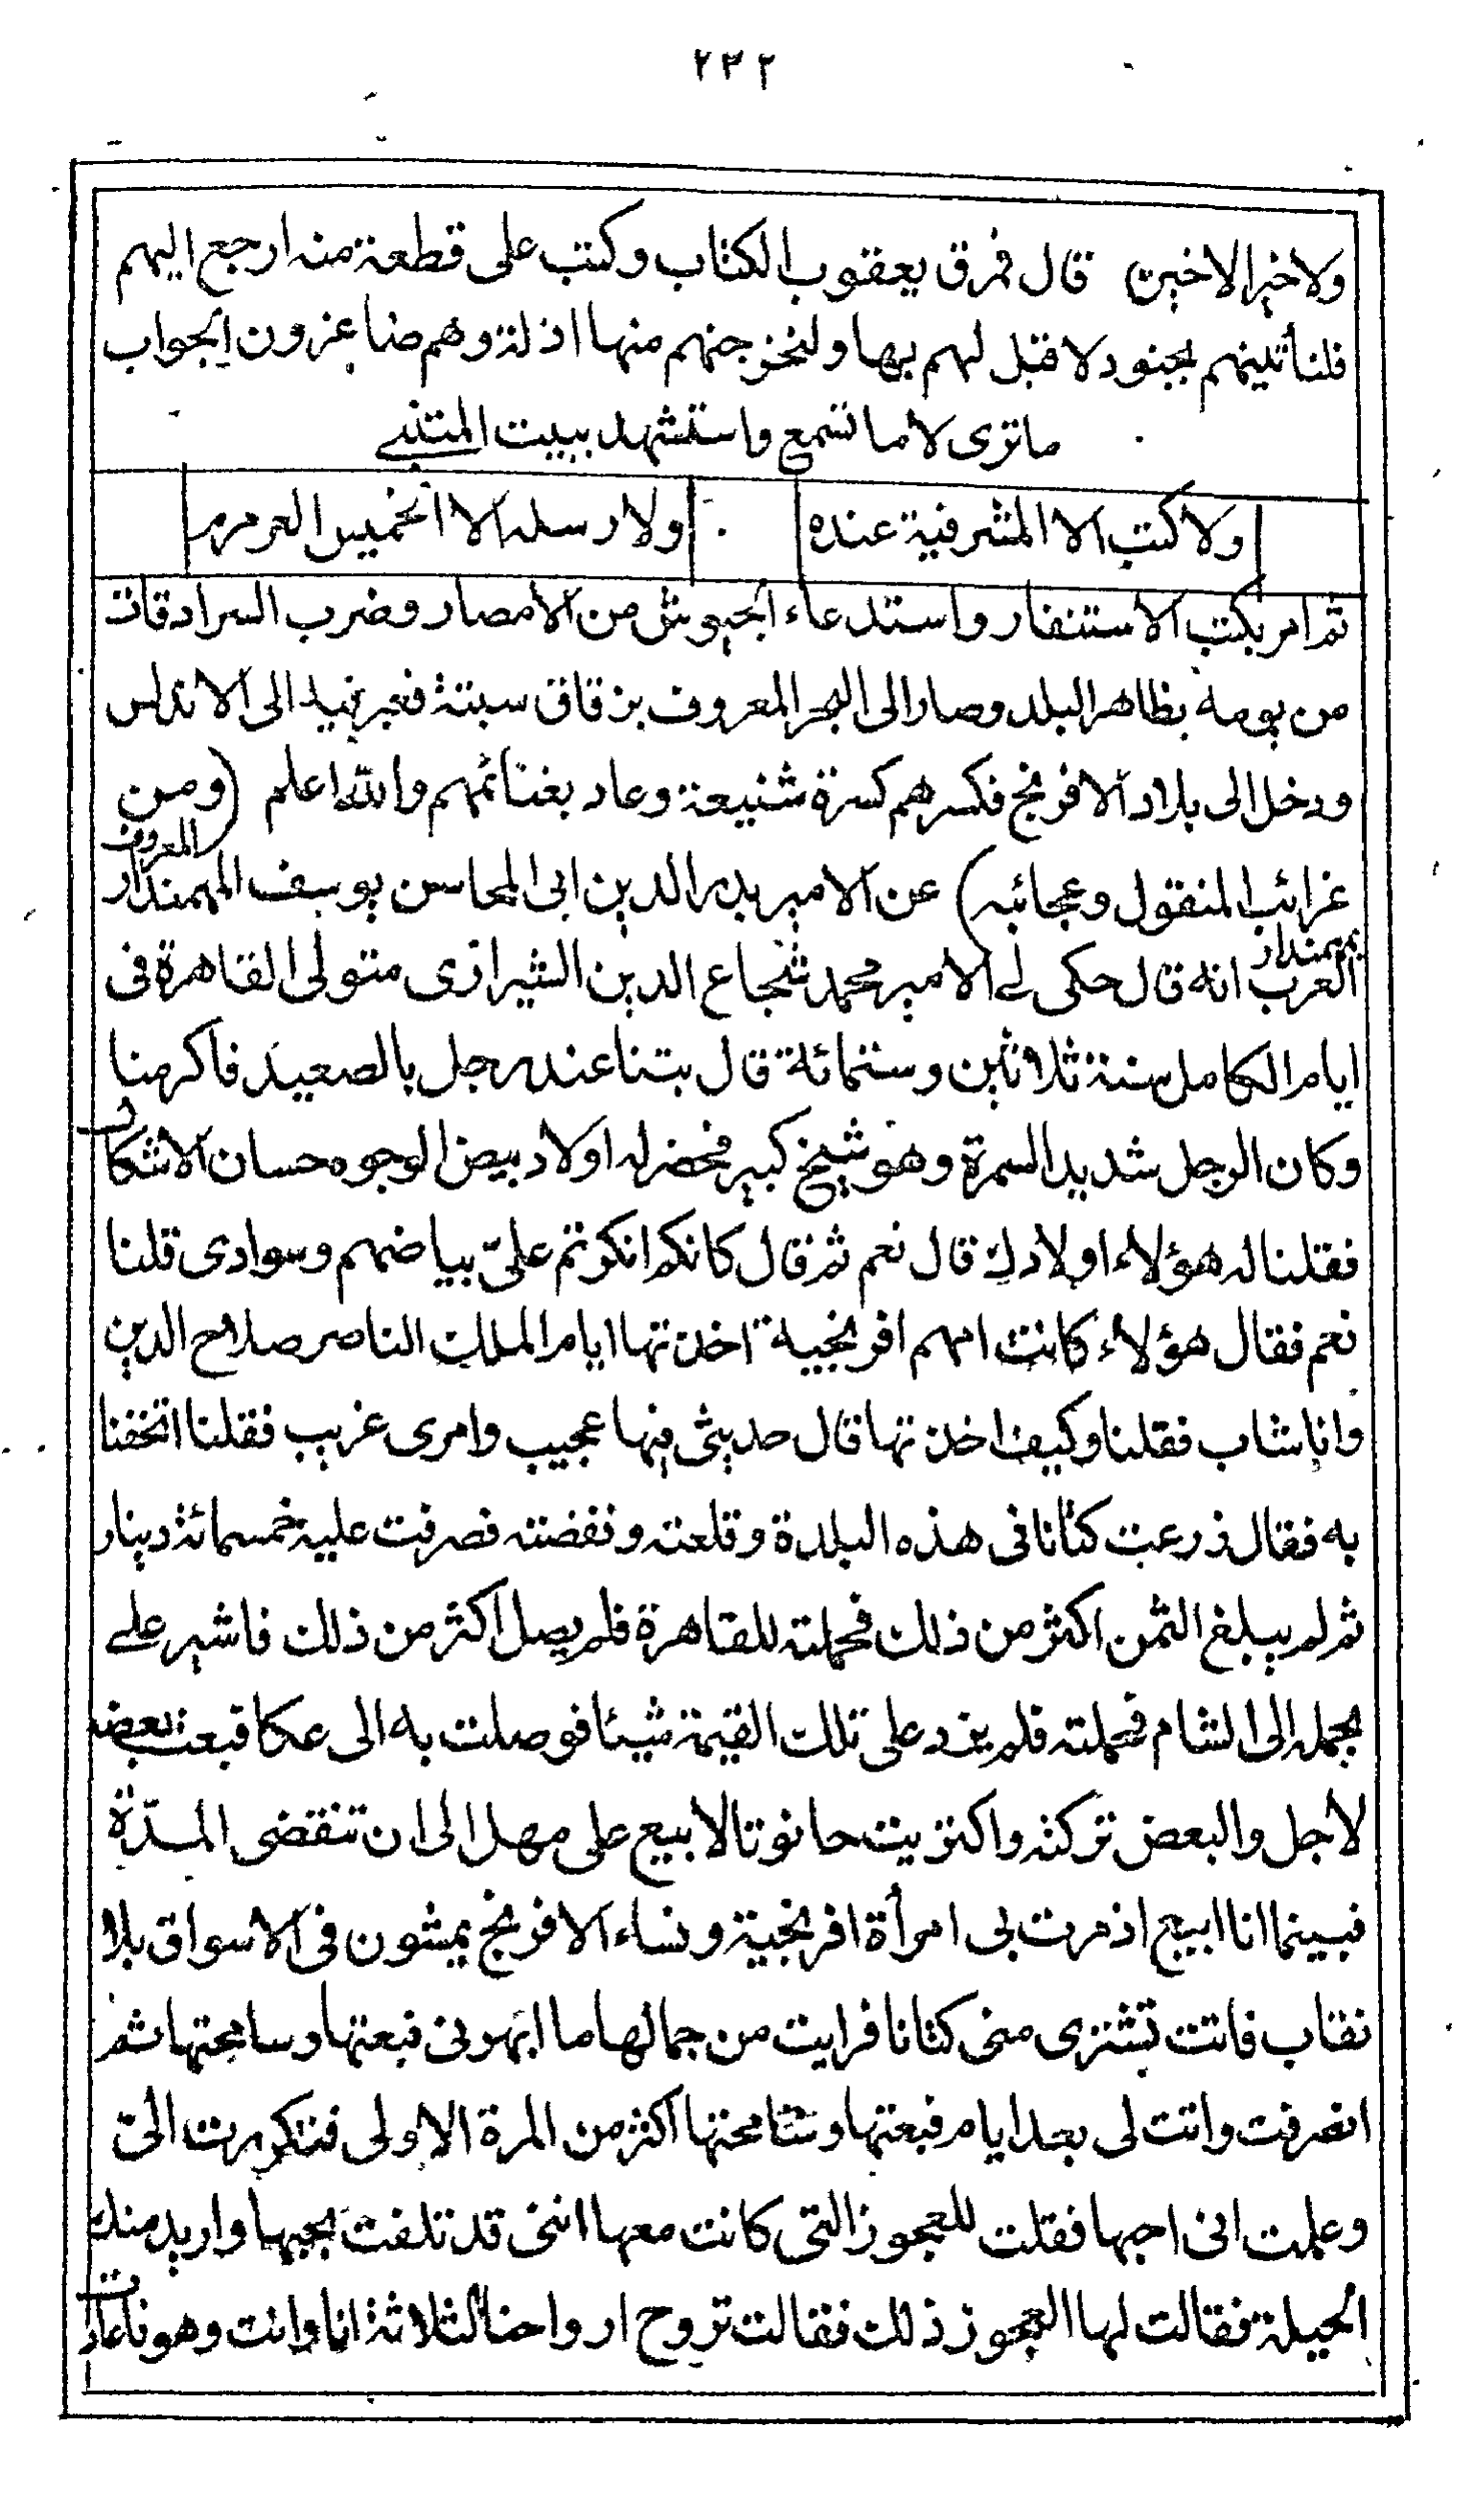 ٢٣٢
ولاخبر الاخبن قال فمزق يعقوب الكتاب وكتب على قطعة منه ارجع اليهم
فلنأتينهم بجنود لا قبل لهم بها ولنخرجنهم منها اذلة وهم صاغرون الجواب
ماترى لا ما تسمع واستشهد ببيت المتنبى
ولا كتب الا المشرفية عنده . ولا رسله الا الخميس العرمرم
ثم امر بكتب الاستنفار واستدعاء الجيوش من الامصار وضرب السرادقات
من يومه بظاهر البلد وصار الى البحر المعروف بزقاق سبتة فعبر فيه الى الاندلس
ودخل الى بلاد الافرنج فكسرهم كسرة شنيعة وعاد بغنائمهم والله اعلم (ومن
غرائب المنقول وعجائبه) عن الامير بدر الدين ابى المحاسن يوسف المهمندار المعروف
بمهمندار العرب انه قال حكى لى الامير محمد شجاع الدين الشيرازى متولى القاهرة فى
ايام الكامل سنة ثلاثين وستمائة قال بتنا عند رجل بالصعيد فاكرمنا
وكان الرجل شديد السمرة وهو شيخ كبير فحضر له اولاد بيض الوجوه حسان الاشكال
فقلنا له هؤلاء اولادك قال نعم ثم قال كانكم انكرتم علىّ بياضهم وسوادى قلنا
نعم فقال هؤلاء كانت امهم افرنجية اخذتها ايام الملك الناصر صلاح الدين
وانا شاب فقلنا وكيف اخذتها قال حديثى فيها عجيب وامرى غريب فقلنا اتحفنا
به فقال زرعت كتانا فى هذه البلدة وقلعته ونفضته فصرفت عليه خمسمائة دينار
ثم لم يبلغ الثمن اكثر من ذلك فحملته للقاهرة فلم يصل اكثر من ذلك فاشير على
بحمله الى الشام فحملته فلم يزد على تلك القيمة شيئا فوصلت به الى عكا فبعت بعضه
لاجل والبعض تركته واكتريت حانوتا لابيع على مهل الى ان تنقضى المدّة
فبينما انا ابيع اذ مرت بى امرأة افرنجية ونساء الافرنج يمشون فى الاسواق بلا
نقاب فاتت تشترى منى كتانا فرايت من جمالها ما ابهرنى فبعتها وسامحتها ثم
انصرفت واتت لى بعد ايام فبعتها وسامحتها اكثر من المرة الاولى فتكررت الىّ
وعلمت انى احبها فقلت للعجوز التى كانت معها اننى قد تلفت بحبها واريد منك
الحيلة فقالت لها العجوز ذلك فقالت تروح ارواحنا الثلاثة انا وانت وهو فاعادت